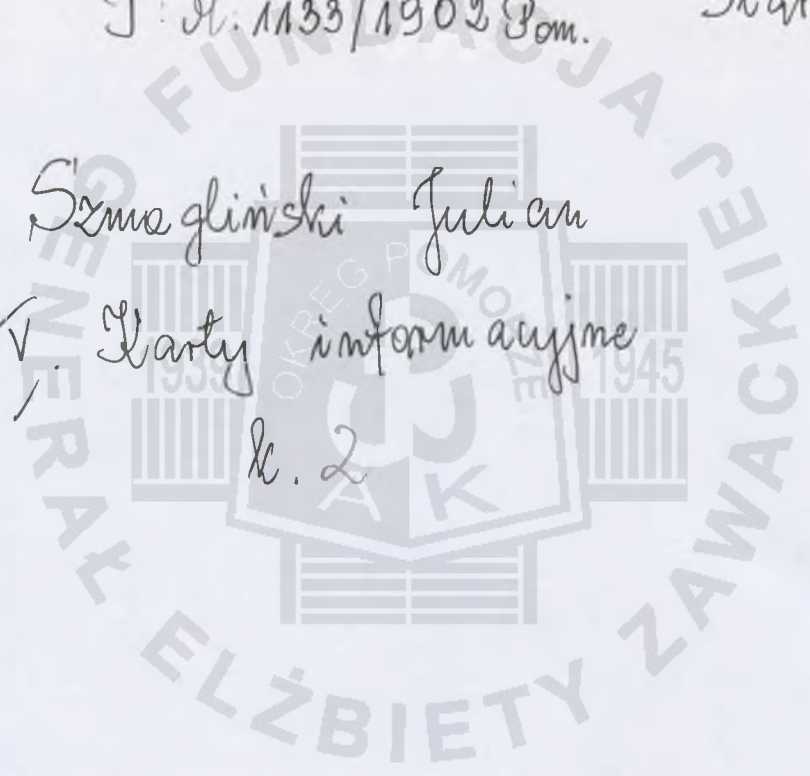 J: M. 1133/1902 Pom.
Szmagliński Julian
V. Karty informacyjne
k. 2
FUNDACJA GENERAŁ ELŻBIETY ZAWACKIEJ
OKRĘG POMORZE
1939 1945
AK